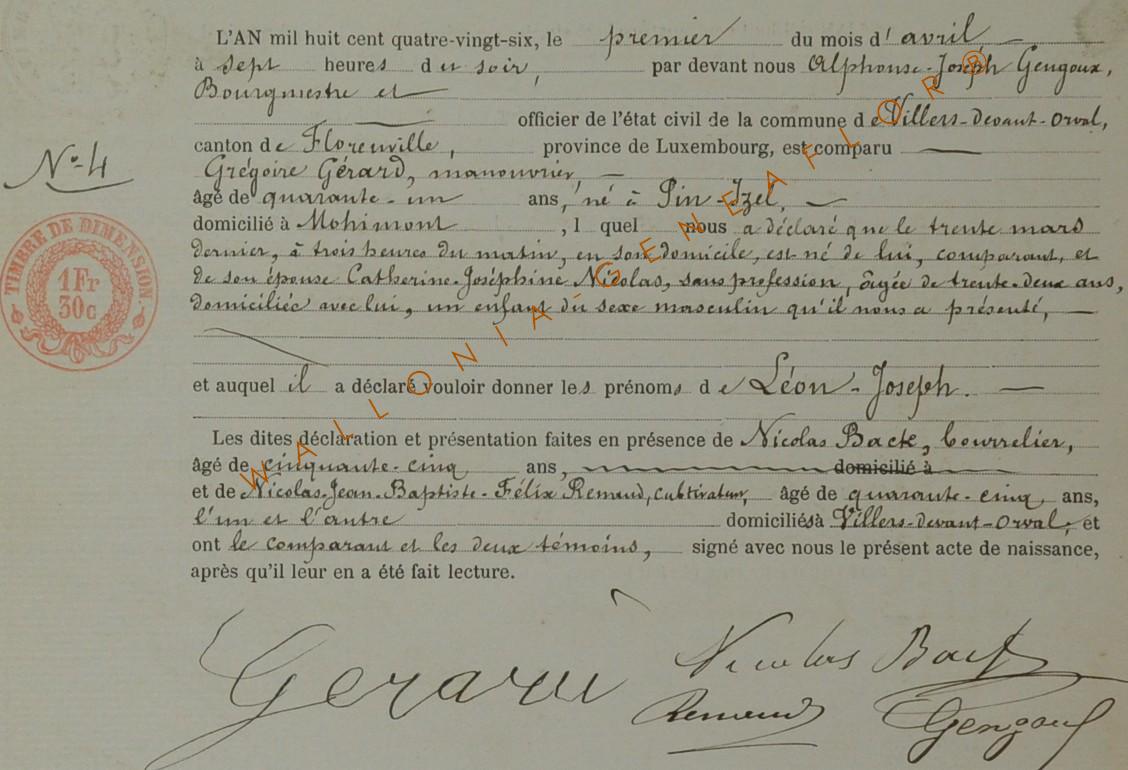 L'AN mil huit cent quatre-vingt-six, le premier du mois d'avril
à sept heures du soir, par devant nous Alphonse-Joseph Gengoux,
Bourgmestre et
officier de l'état civil de la commune de Villers-devant-Orval,
canton de Florenville, province de Luxembourg, est comparu
N° 4
Grégoire Gérard, manouvrier,
âgé de quarante-un ans, né à Pin-Izel,
domicilié à Mohimont, l quel nous a déclaré que le trente mars
dernier, à trois heures du matin, en son domicile, est né de lui, comparant, et
de son épouse Catherine-Joséphine Nicolas, sans profession, âgée de trente-deux ans,
domiciliée avec lui, un enfant du sexe masculin qu'il nous a présenté,
TIMBRE DE DIMENSION
1 Fr
30 c
et auquel il a déclaré vouloir donner les prénoms de Léon-Joseph.
Les dites déclaration et présentation faites en présence de Nicolas Backe, bourrelier,
âgé de cinquante-cinq ans, domicilié à
et de Nicolas-Jean-Baptiste-Félix Remaud, cultivateur, âgé de quarante-cinq ans,
l'un et l'autre domiciliés à Villers-devant-Orval, et
ont le comparant et les deux témoins, signé avec nous le présent acte de naissance,
après qu'il leur en a été fait lecture.
Gerard
Nicolas
Remaud
Gengoux
WALLONIA - GENEAFLOR®